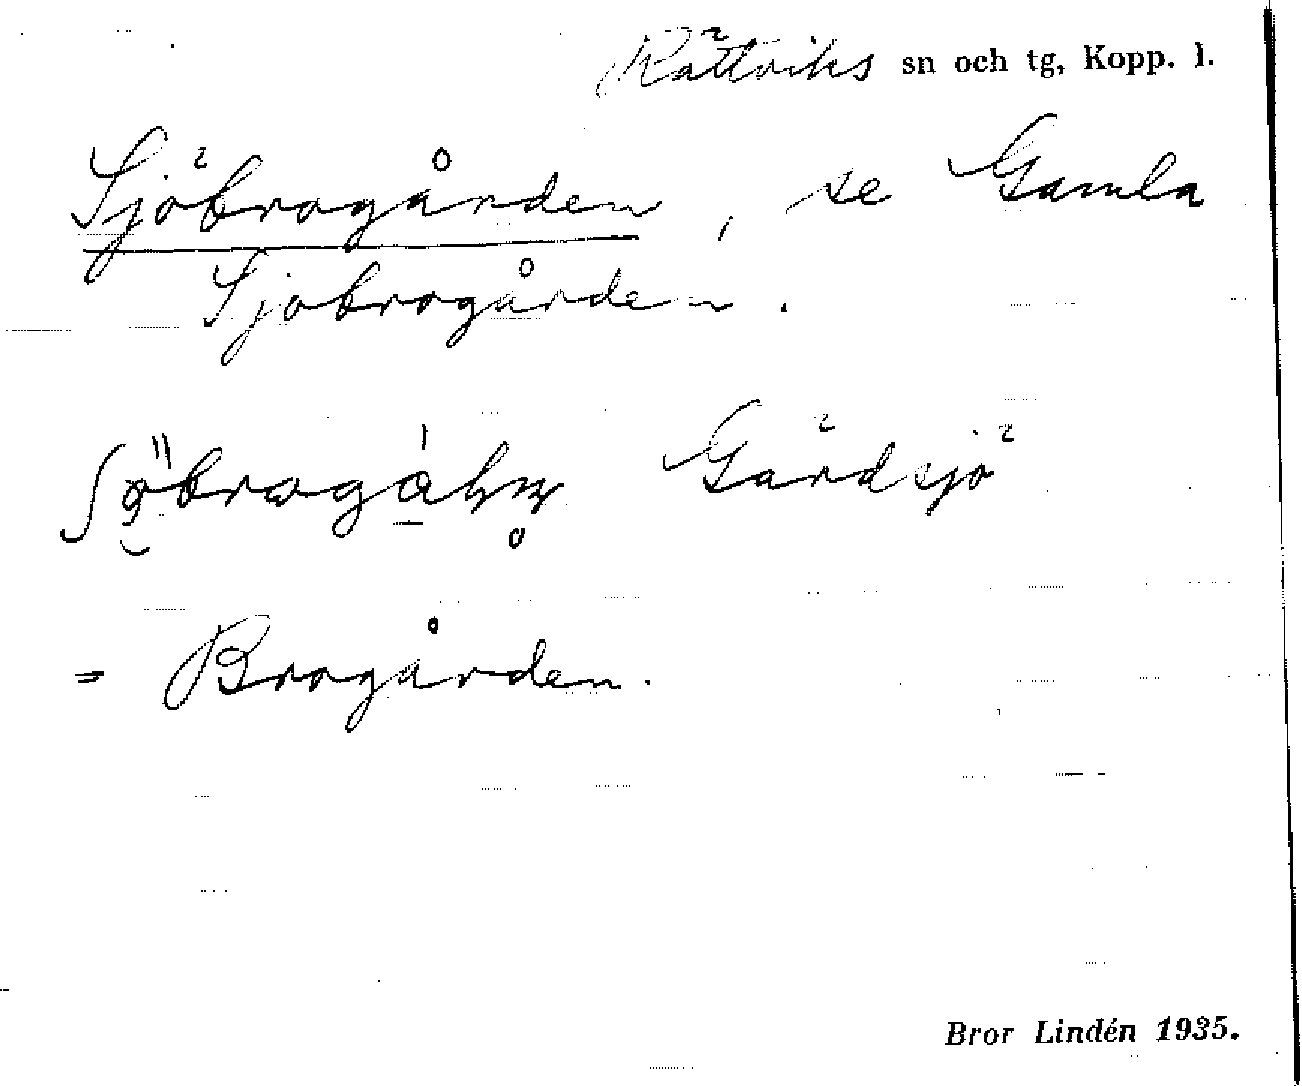 Rättviks sn och tg, Kopp. l.
Sjöbrogården, se Gamla
Sjöbrogården.
Gärdsjö
= Brogården.
Bror Lindén 1935.